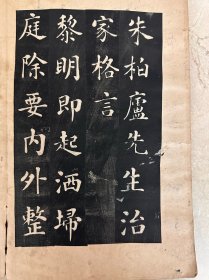 朱柏廬先生治
家格言
黎明即起洒埽
庭除要内外整